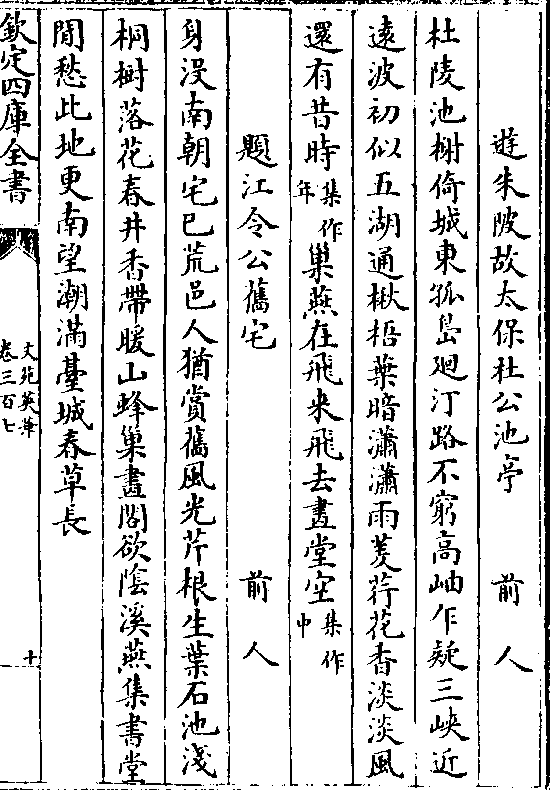 遊朱陂故太保杜公池亭　前人
杜陵池榭倚城東孤島廻汀路不窮高岫乍疑三峽近
遠波初似五湖通楸梧葉暗瀟瀟雨菱荇花香淡淡風
還有昔時集作年巢燕在飛來飛去畫堂空集作中
題江令公舊宅　前人
身没南朝宅已荒邑人猶賞舊風光芹根生葉石池淺
桐樹落花春井香帶暖山蜂巢畫閣欲陰溪燕集書堂
閒愁此地更南望潮滿臺城春草長
欽定四庫全書
文苑英華
卷三百七
十